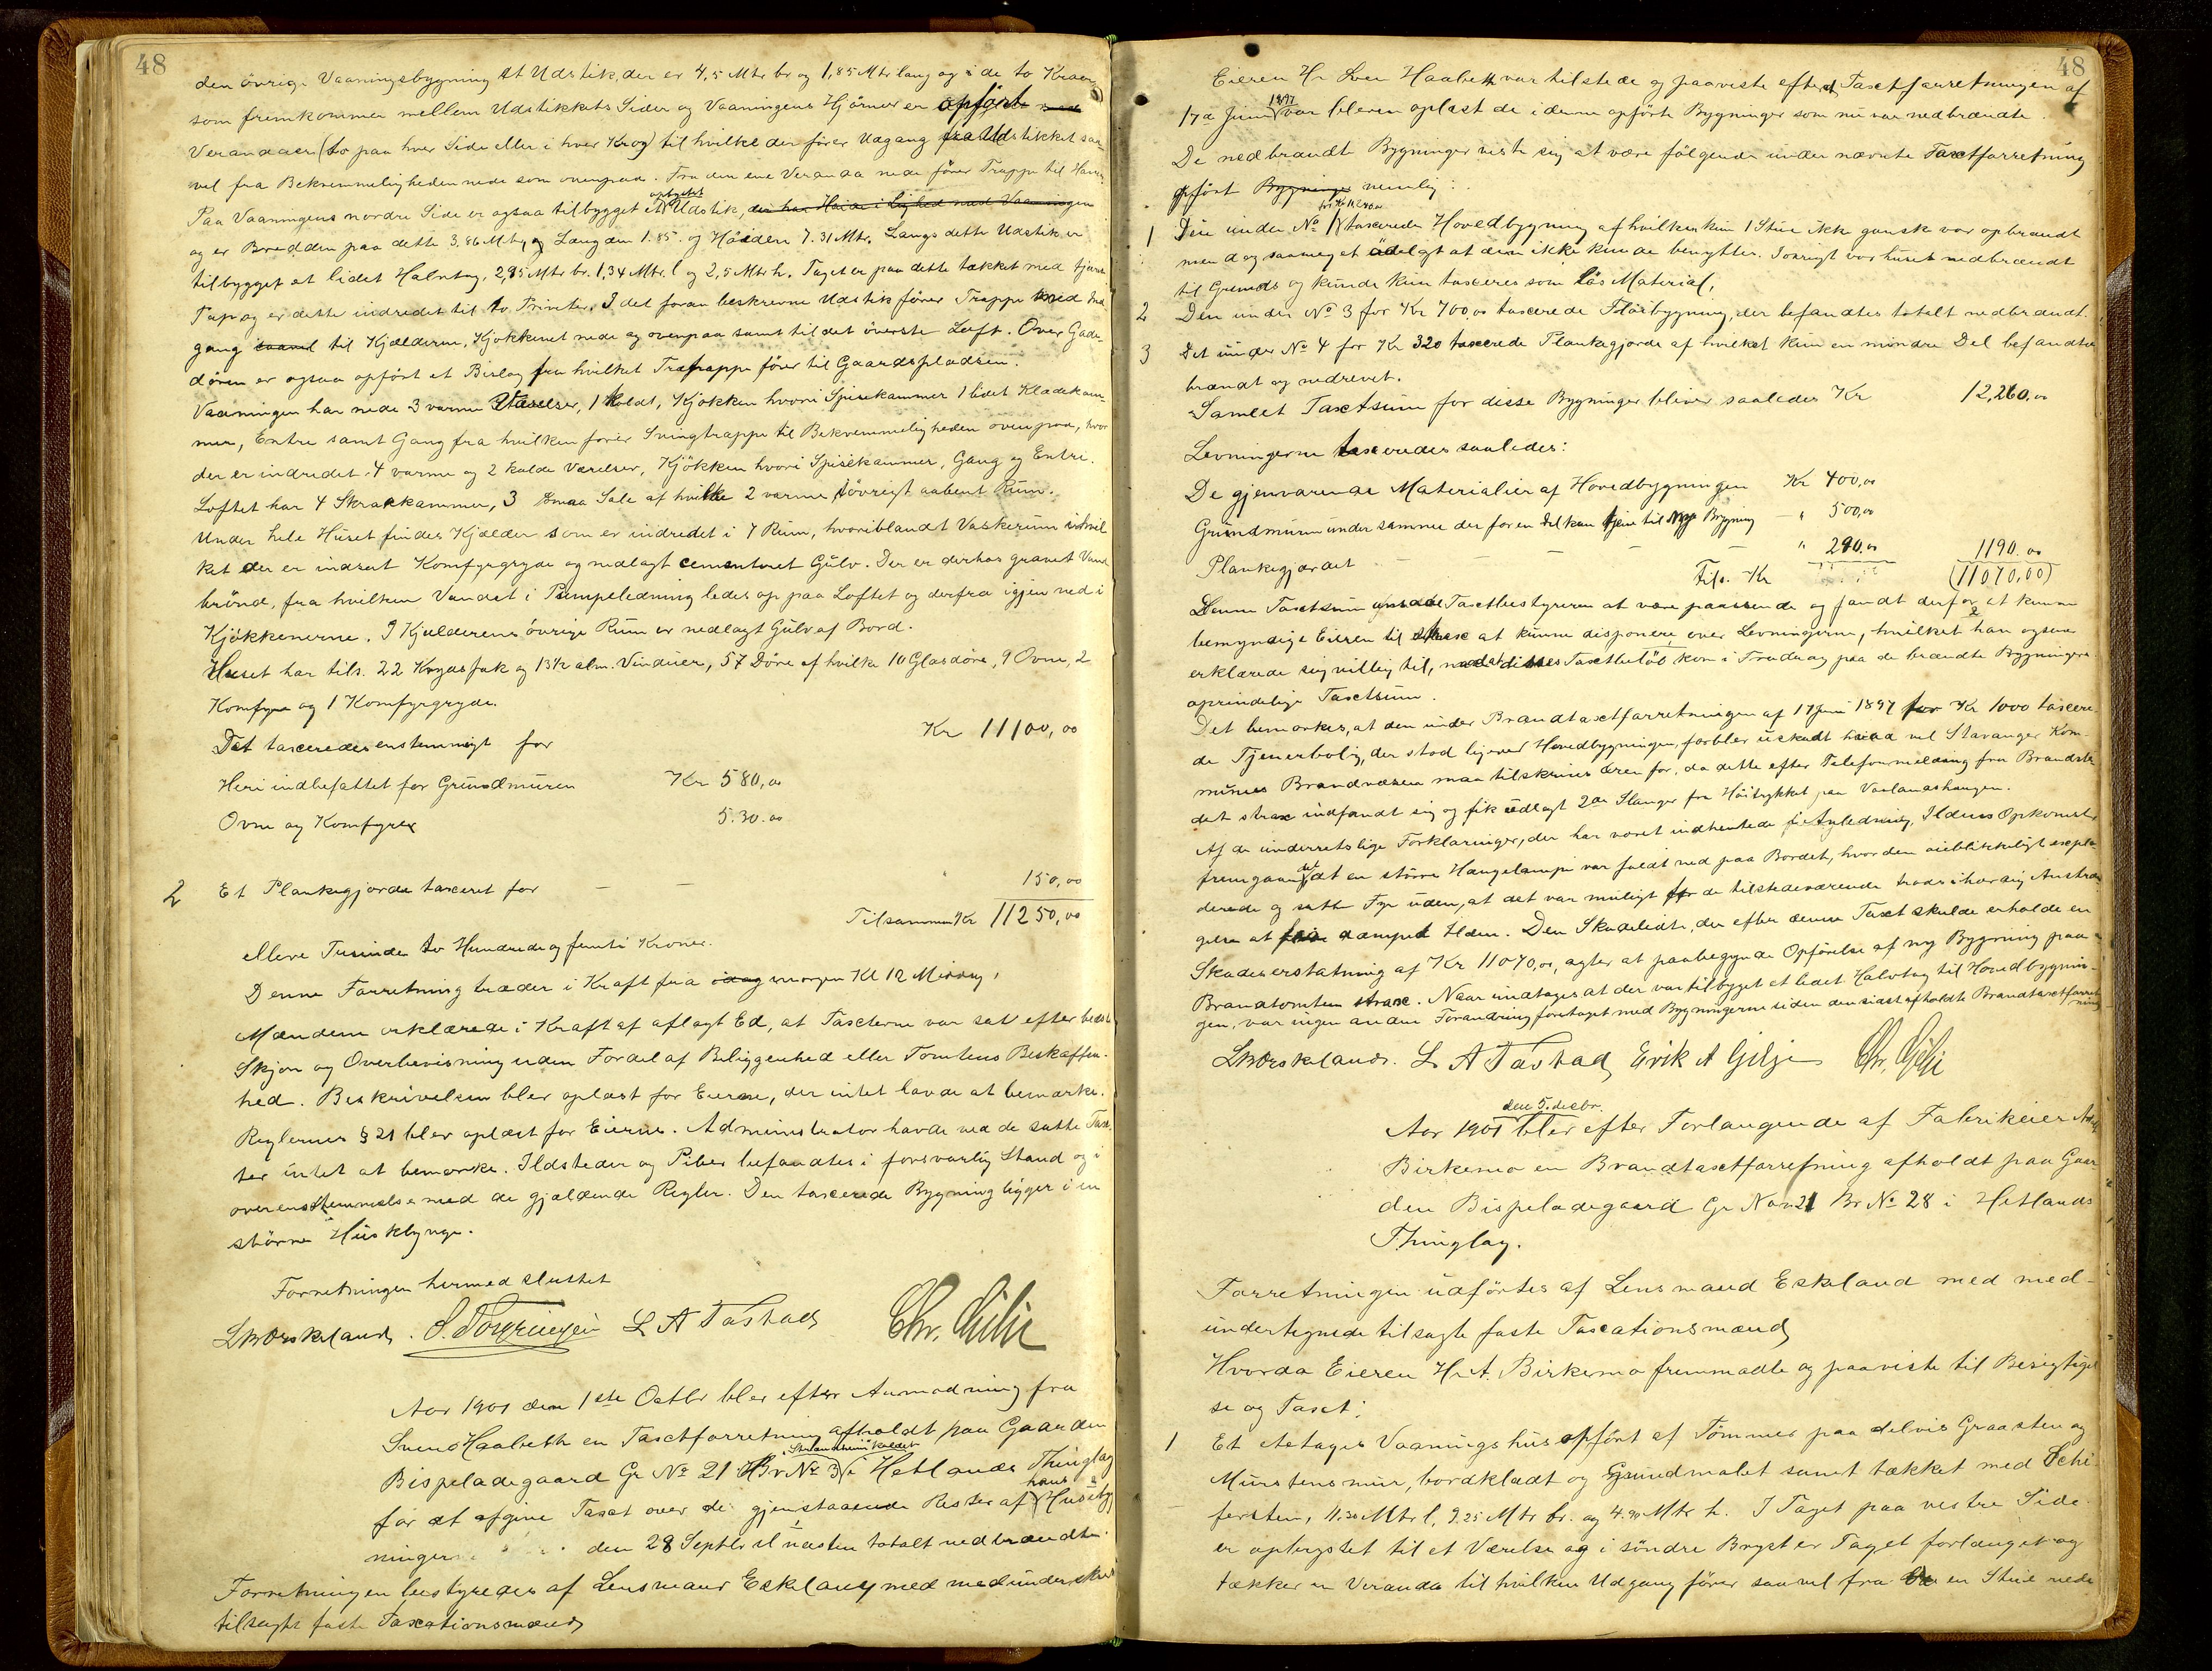 48
den övrige Vaaningsbygning et Udstik, der er 4,5 Mtr br og 1,85 Mtr lang og i de to Kroer
som fremkommer mellem Udstikkets Sider og Vaaningens Hjörner er opfört med
Verandaer (to paa hver Side eller i hver Krog) til hvilke der förer Udgang fra Udstikket saa-
vel fra Bekvemmeligheden nede som ovenpaa. Fra den ene Veranda nede förer Trappe til Haven
Paa Vaaningens nordre Side er ogsaa tilbygget et opbygget Udstik, der har Höide i lighed med Vaaningen
og er Bredden paa dette 3.86 Mtr, og Længden 1.85. og Höiden 7.31 Mtr. Langs dette Udstik er
tilbygget et lidet Halvtag, 2,85 Mtr br. 1,34 Mtr. l og 2,5 Mtr h. Taget er paa dette tækket med tjæret
Pap og er dette indredet til to Priveter. I det foran beskrevne Udstik förer Trappe med Ned
gang saavel til Kjælderen, Kjökkenet nede og ovenpaa samt til det överste Loft. Over Gade-
dören er ogsaa opfört et Bislag fra hvilket Trætrappe förer til Gaardspladsen.
Vaaningen har nede 3 varme Værelser, 1 koldt, Kjökken hvori Spisekammer 1 lidet Klædekam-
mer, Entre samt Gang fra hvilken förer Svingtrappe til Bekvemmeligheden ovenpaa, hvor
der er indredet 4 varme og 2 kolde Værelser, Kjökken hvori Spisekammer, Gang og Entre.
Loftet har 4 Skraakkammer, 3 smaa Sale af hvilke 2 varme, iövrigt aabent Rum.
Under hele Huset findes Kjælder som er indredet i 7 Rum, hvoriblandt Vaskerum i hvil
ket der er indsat Komfyrgryde og nedlagt cementeret Gulv. Der er derhos gravet Vand
brönd, fra hvilken Vandet i Pumpeledning ledes op paa Loftet og derfra igjen ned i
Kjökkenerne. I Kjælderens övrige Rum er nedlagt Gulv af Bord.
Huset har tils. 22 Krydsfak og 13 1/2 alm. Vinduer, 57 Döre af hvilke 10 Glasdöre, 9 Ovne, 2
Komfyre og 1 Komfyrgryde.
Det taxeredes enstemmigt for Kr 11100,00
Heri indbefattet for Grundmuren Kr 580,00
Ovne og Komfyrer 5.30.00
2 Et Plankegjærde taxeret for — — 150,00
Tilsammen Kr 11250,00
elleve Tusinde to Hundrede og femti Kroner.
Denne Forretning træder i Kraft fra idag morgen Kl 12 Middag,
Mændene erklærede i Kraft af aflagt Ed, at Taxterne var sat efter bedste
Skjön og Overbevisning uden Fordel af Beliggenhed eller Tomtens Beskaffen-
hed. Beskrivelsen blev oplæst for Eierne, der intet havde at bemærke.
Reglernes § 21 blev oplæst for Eierne. Administrator havde ved de satte Tax-
ter intet at bemærke. Ildsteder og Piber befandtes i forsvarlig Stand og i
overensstemmelse med de gjældende Regler. Den taxerede Bygning ligger i en
större Husklynge.
Forretningen hermed sluttet
L. A Tastad
Chr. Gilje
Aar 1901 den 1ste Octbr blev efter Anmodning fra
Svend Haabeth en Taxtforretning afholdt paa Gaarden
Bispeladegaard Gr No 21 Br No 3 "Strandheim" kaldet i Hetlands Thinglag
for at afgive Taxt over de gjenstaaende Rester af hans Husbyg
ninger den 28 Septbr d næsten totalt nedbrændte.
Forretningen bestyredes af Lensmand Eskeland med medunderskrevne
tilsagte faste Taxationsmænd
48
Eieren Hr Sven Haabeth var tilstede og paaviste efter at Taxtforretningen af
17de Juni 1897 var bleven oplæst de i denne opförte Bygninger som nu var nedbrændte.
De nedbrændte Bygninger viste sig at være fölgende under nævnte Taxtforretning
opfört Bygninger nemlig:
1 Den under No 1 for Kr 11,240,00 taxerede Hovedbygning af hvilken kun 1 Stue ikke ganske var opbrændt
men dog saameget ödelagt at den ikke kunde benyttes. Iövrigt var huset nedbrændt
til Grunds og kunde kun taxeres som lös Material,
2 Den under No 3 for Kr 700,00 taxerede Flöibygning, der befandtes totalt nedbrændt.
3 Det under No 4 for Kr 320 taxerede Plankegjærde af hvilket kun en mindre Del befandtes
brændt og nedrevet.
Samlet Taxtsum for disse Bygninger bliver saaledes Kr 12,260,00
Levningerne taxeredes saaledes:
De gjenværende Materialier af Hovedbygningen Kr 400,00
Grundmuren under samme der for en Del kan tjene til ny Bygning — " 500,00
Plankegjærdet — — — — — " 290.00 1190.00
Tils. Kr (11070,00)
Denne Taxtsum ansaa Taxtbestyreren at være passende og fandt derfor at kunne
bemyndige Eieren til strax at kunne disponere over Levningerne, hvilket han ogsaa
erklærede sig villig til, med at disses Taxtbelöb kom i Fradrag paa de brændte Bygningers
oprindelige Taxtsum.
Det bemærkes, at den under Brandtaxtforretningen af 17 Juni 1897 for Kr 1000 taxere
de Tjenerbolig, der stod ligeved Hovedbygningen, forblev uskadt hvad vel Stavanger Kom-
munes Brandvæsen maa tilskrives æren for, da dette efter Telefonmelding fra Brandste
det strax indfandt sig og fik udlagt 2de Slanger fra Höitrykket paa Vaalandshaugen.
Af de underretslige Forklaringer, der har været indhentede i Anledning Ildens Opkomst
fremgaar det at en större Hængelampe var faldt ned paa Bordet, hvor den öieblikkeligt explo
derede og satte Fyr uden, at det var muligt for de tilstedeværende trods ihærdig Anstren
gelse at faa dæmpet Ilden. Den Skadelidte, der efter denne Taxt skulde erholde en
Skadeserstatning af Kr 11070,00, agter at paabegynde Opförelse af ny Bygning paa
Brandtomten strax. Naar undtages at der var tilbyget et lidet Halvtag til Hovedbygnin-
gen, var ingen anden Forandring foretaget med Bygningerne siden den sidst afholdte Brandtaxtforret
ning
L A Tastad Erik A Gilje Chr. Gilje
Aar 1901 den 5. decbr. blev efter Forlangende af Fabrikeier
Birkemo en Brandtaxtforretning afholdt paa Gaar
den Bispeladegaard Gr No 21 Br No 28 i Hetlands
Thinglag.
Forretningen udförtes af Lensmand Eskeland med med-
undertegnede tilsagte faste Taxationsmænd
Hvorda Eieren Hr A. Birkemo fremmödte og paaviste til Besigtigel
se og Taxt:
1 Et Vaaningshus opfört af Tömmer paa delvis Graasten og
Murstensmur, bordklædt og grundmalet samt tækket med Schi
fersten, 11.30 Mtr l, 9.25 Mtr br. og 4.90 Mtr h. I Taget paa vestre Side
er opbygget til et Værelse og i söndre Bryst er Taget forlænget og
tækker en Veranda til hvilken Udgang förer saavel fra en Stue nede